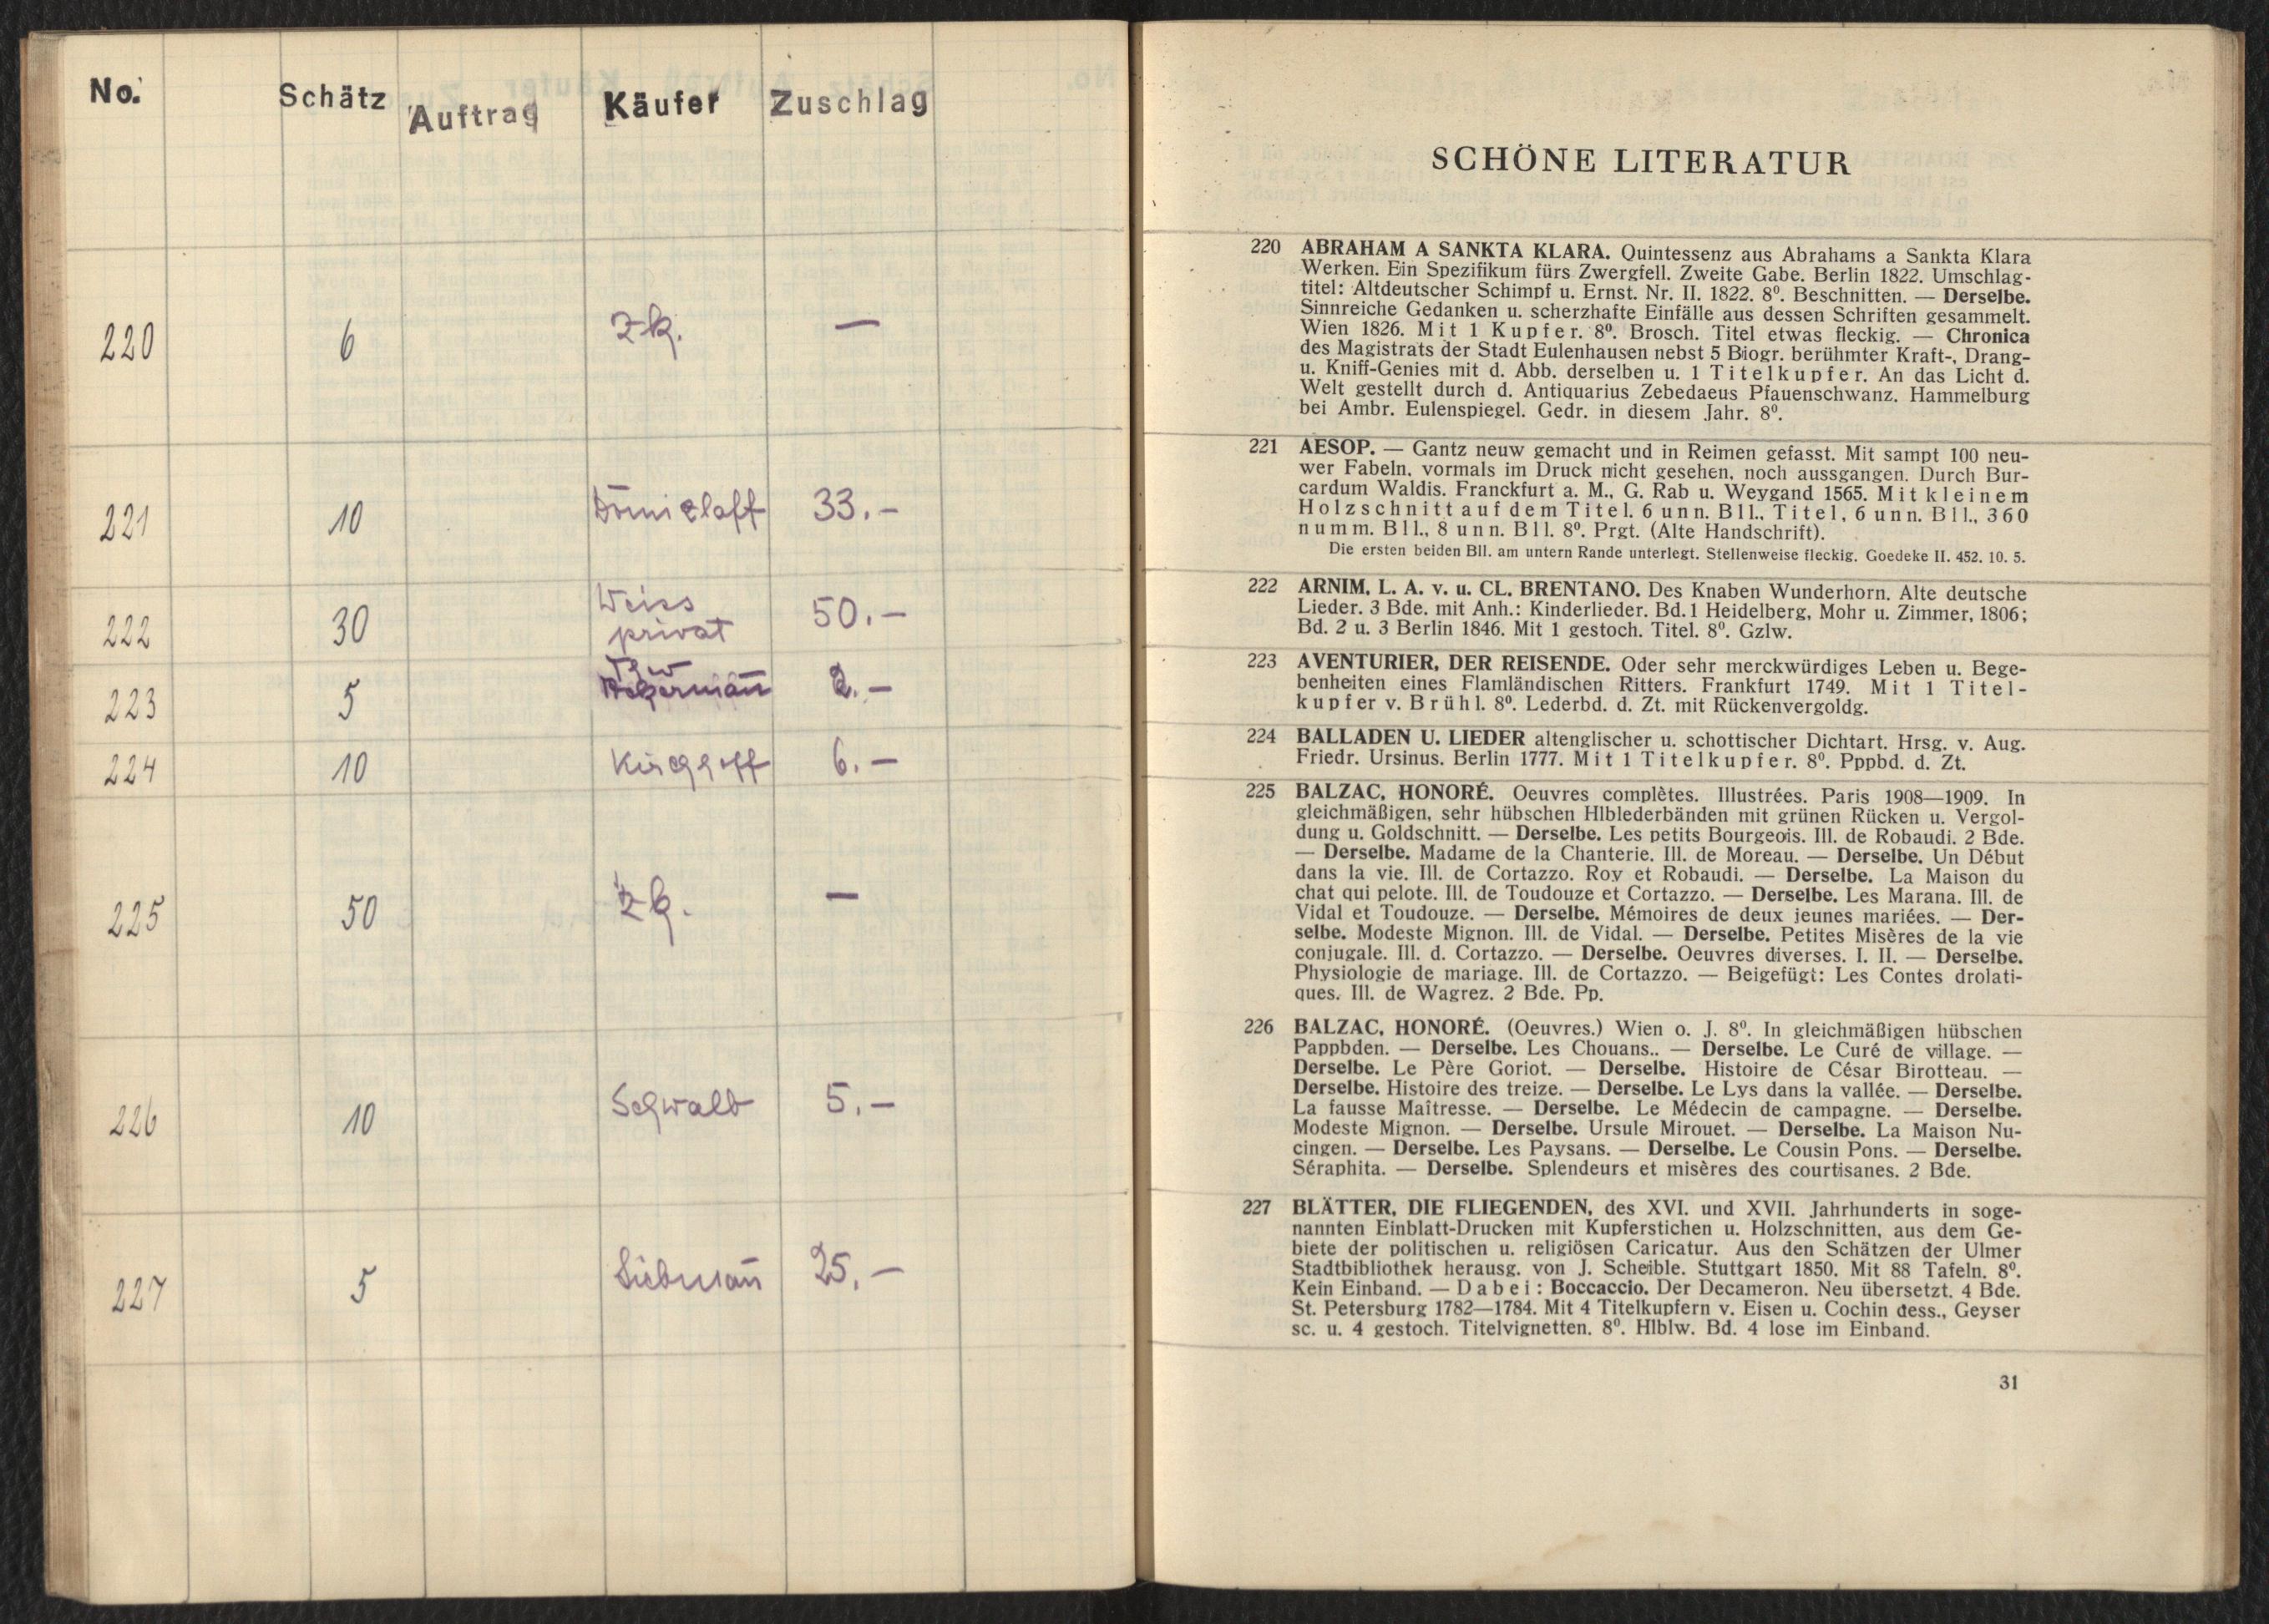 No. Schätz Auftrag Käufer Zuschlag
220 6 zk. —
221 10 33.—
222 30 Weiss privat 50.—
223 5 2.—
224 10 Kirchhoff 6.—
225 50 zk. —
226 10 Schwalb 5.—
227 5 Liebmañ 25.—
SCHÖNE LITERATUR
220 ABRAHAM A SANKTA KLARA. Quintessenz aus Abrahams a Sankta Klara
Werken. Ein Spezifikum fürs Zwergfell. Zweite Gabe. Berlin 1822. Umschlag-
titel: Altdeutscher Schimpf u. Ernst. Nr. II. 1822. 8⁰. Beschnitten. — Derselbe.
Sinnreiche Gedanken u. scherzhafte Einfälle aus dessen Schriften gesammelt.
Wien 1826. Mit 1 Kupfer. 8⁰. Brosch. Titel etwas fleckig. — Chronica
des Magistrats der Stadt Eulenhausen nebst 5 Biogr. berühmter Kraft-, Drang-
u. Kniff-Genies mit d. Abb. derselben u. 1 Titelkupfer. An das Licht d.
Welt gestellt durch d. Antiquarius Zebedaeus Pfauenschwanz. Hammelburg
bei Ambr. Eulenspiegel. Gedr. in diesem Jahr. 8⁰.
221 AESOP. — Gantz neuw gemacht und in Reimen gefasst. Mit sampt 100 neu-
wer Fabeln. vormals im Druck nicht gesehen, noch aussgangen. Durch Bur-
cardum Waldis. Franckfurt a. M., G. Rab u. Weygand 1565. Mit kleinem
Holzschnitt auf dem Titel. 6 unn. Bll., Titel, 6 unn. Bll., 360
numm. Bll., 8 unn. Bll. 8⁰. Prgt. (Alte Handschrift).
Die ersten beiden Bll. am untern Rande unterlegt. Stellenweise fleckig. Goedeke II. 452. 10. 5.
222 ARNIM, L. A. v. u. CL. BRENTANO. Des Knaben Wunderhorn. Alte deutsche
Lieder. 3 Bde. mit Anh.: Kinderlieder. Bd. 1 Heidelberg, Mohr u. Zimmer, 1806;
Bd. 2 u. 3 Berlin 1846. Mit 1 gestoch. Titel. 8⁰. Gzlw.
223 AVENTURIER, DER REISENDE. Oder sehr merckwürdiges Leben u. Bege-
benheiten eines Flamländischen Ritters. Frankfurt 1749. Mit 1 Titel-
kupfer v. Brühl. 8⁰. Lederbd. d. Zt. mit Rückenvergoldg.
224 BALLADEN U. LIEDER altenglischer u. schottischer Dichtart. Hrsg. v. Aug.
Friedr. Ursinus. Berlin 1777. Mit 1 Titelkupfer. 8⁰. Pppbd. d. Zt.
225 BALZAC, HONORÉ. Oeuvres complètes. Illustrées. Paris 1908—1909. In
gleichmäßigen, sehr hübschen Hlblederbänden mit grünen Rücken u. Vergol-
dung u. Goldschnitt. — Derselbe. Les petits Bourgeois. Ill. de Robaudi. 2 Bde.
— Derselbe. Madame de la Chanterie. Ill. de Moreau. — Derselbe. Un Début
dans la vie. Ill. de Cortazzo. Roy et Robaudi. — Derselbe. La Maison du
chat qui pelote. Ill. de Toudouze et Cortazzo. — Derselbe. Les Marana. Ill. de
Vidal et Toudouze. — Derselbe. Mémoires de deux jeunes mariées. — Der-
selbe. Modeste Mignon. Ill. de Vidal. — Derselbe. Petites Misères de la vie
conjugale. Ill. d. Cortazzo. — Derselbe. Oeuvres diverses. I. II. — Derselbe.
Physiologie de mariage. Ill. de Cortazzo. — Beigefügt: Les Contes drolati-
ques. Ill. de Wagrez. 2 Bde. Pp.
226 BALZAC, HONORÉ. (Oeuvres.) Wien o. J. 8⁰. In gleichmäßigen hübschen
Pappbden. — Derselbe. Les Chouans.. — Derselbe. Le Curé de village. —
Derselbe. Le Père Goriot. — Derselbe. Histoire de César Birotteau. —
Derselbe. Histoire des treize. — Derselbe. Le Lys dans la vallée. — Derselbe.
La fausse Maîtresse. — Derselbe. Le Médecin de campagne. — Derselbe.
Modeste Mignon. — Derselbe. Ursule Mirouet. — Derselbe. La Maison Nu-
cingen. — Derselbe. Les Paysans. — Derselbe. Le Cousin Pons. — Derselbe.
Séraphita. — Derselbe. Splendeurs et misères des courtisanes. 2 Bde.
227 BLÄTTER, DIE FLIEGENDEN, des XVI. und XVII. Jahrhunderts in soge-
nannten Einblatt-Drucken mit Kupferstichen u. Holzschnitten, aus dem Ge-
biete der politischen u. religiösen Caricatur. Aus den Schätzen der Ulmer
Stadtbibliothek herausg. von J. Scheible. Stuttgart 1850. Mit 88 Tafeln. 8⁰.
Kein Einband. — Dabei: Boccaccio. Der Decameron. Neu übersetzt. 4 Bde.
St. Petersburg 1782—1784. Mit 4 Titelkupfern v. Eisen u. Cochin dess., Geyser
sc. u. 4 gestoch. Titelvignetten. 8⁰. Hlblw. Bd. 4 lose im Einband.
31